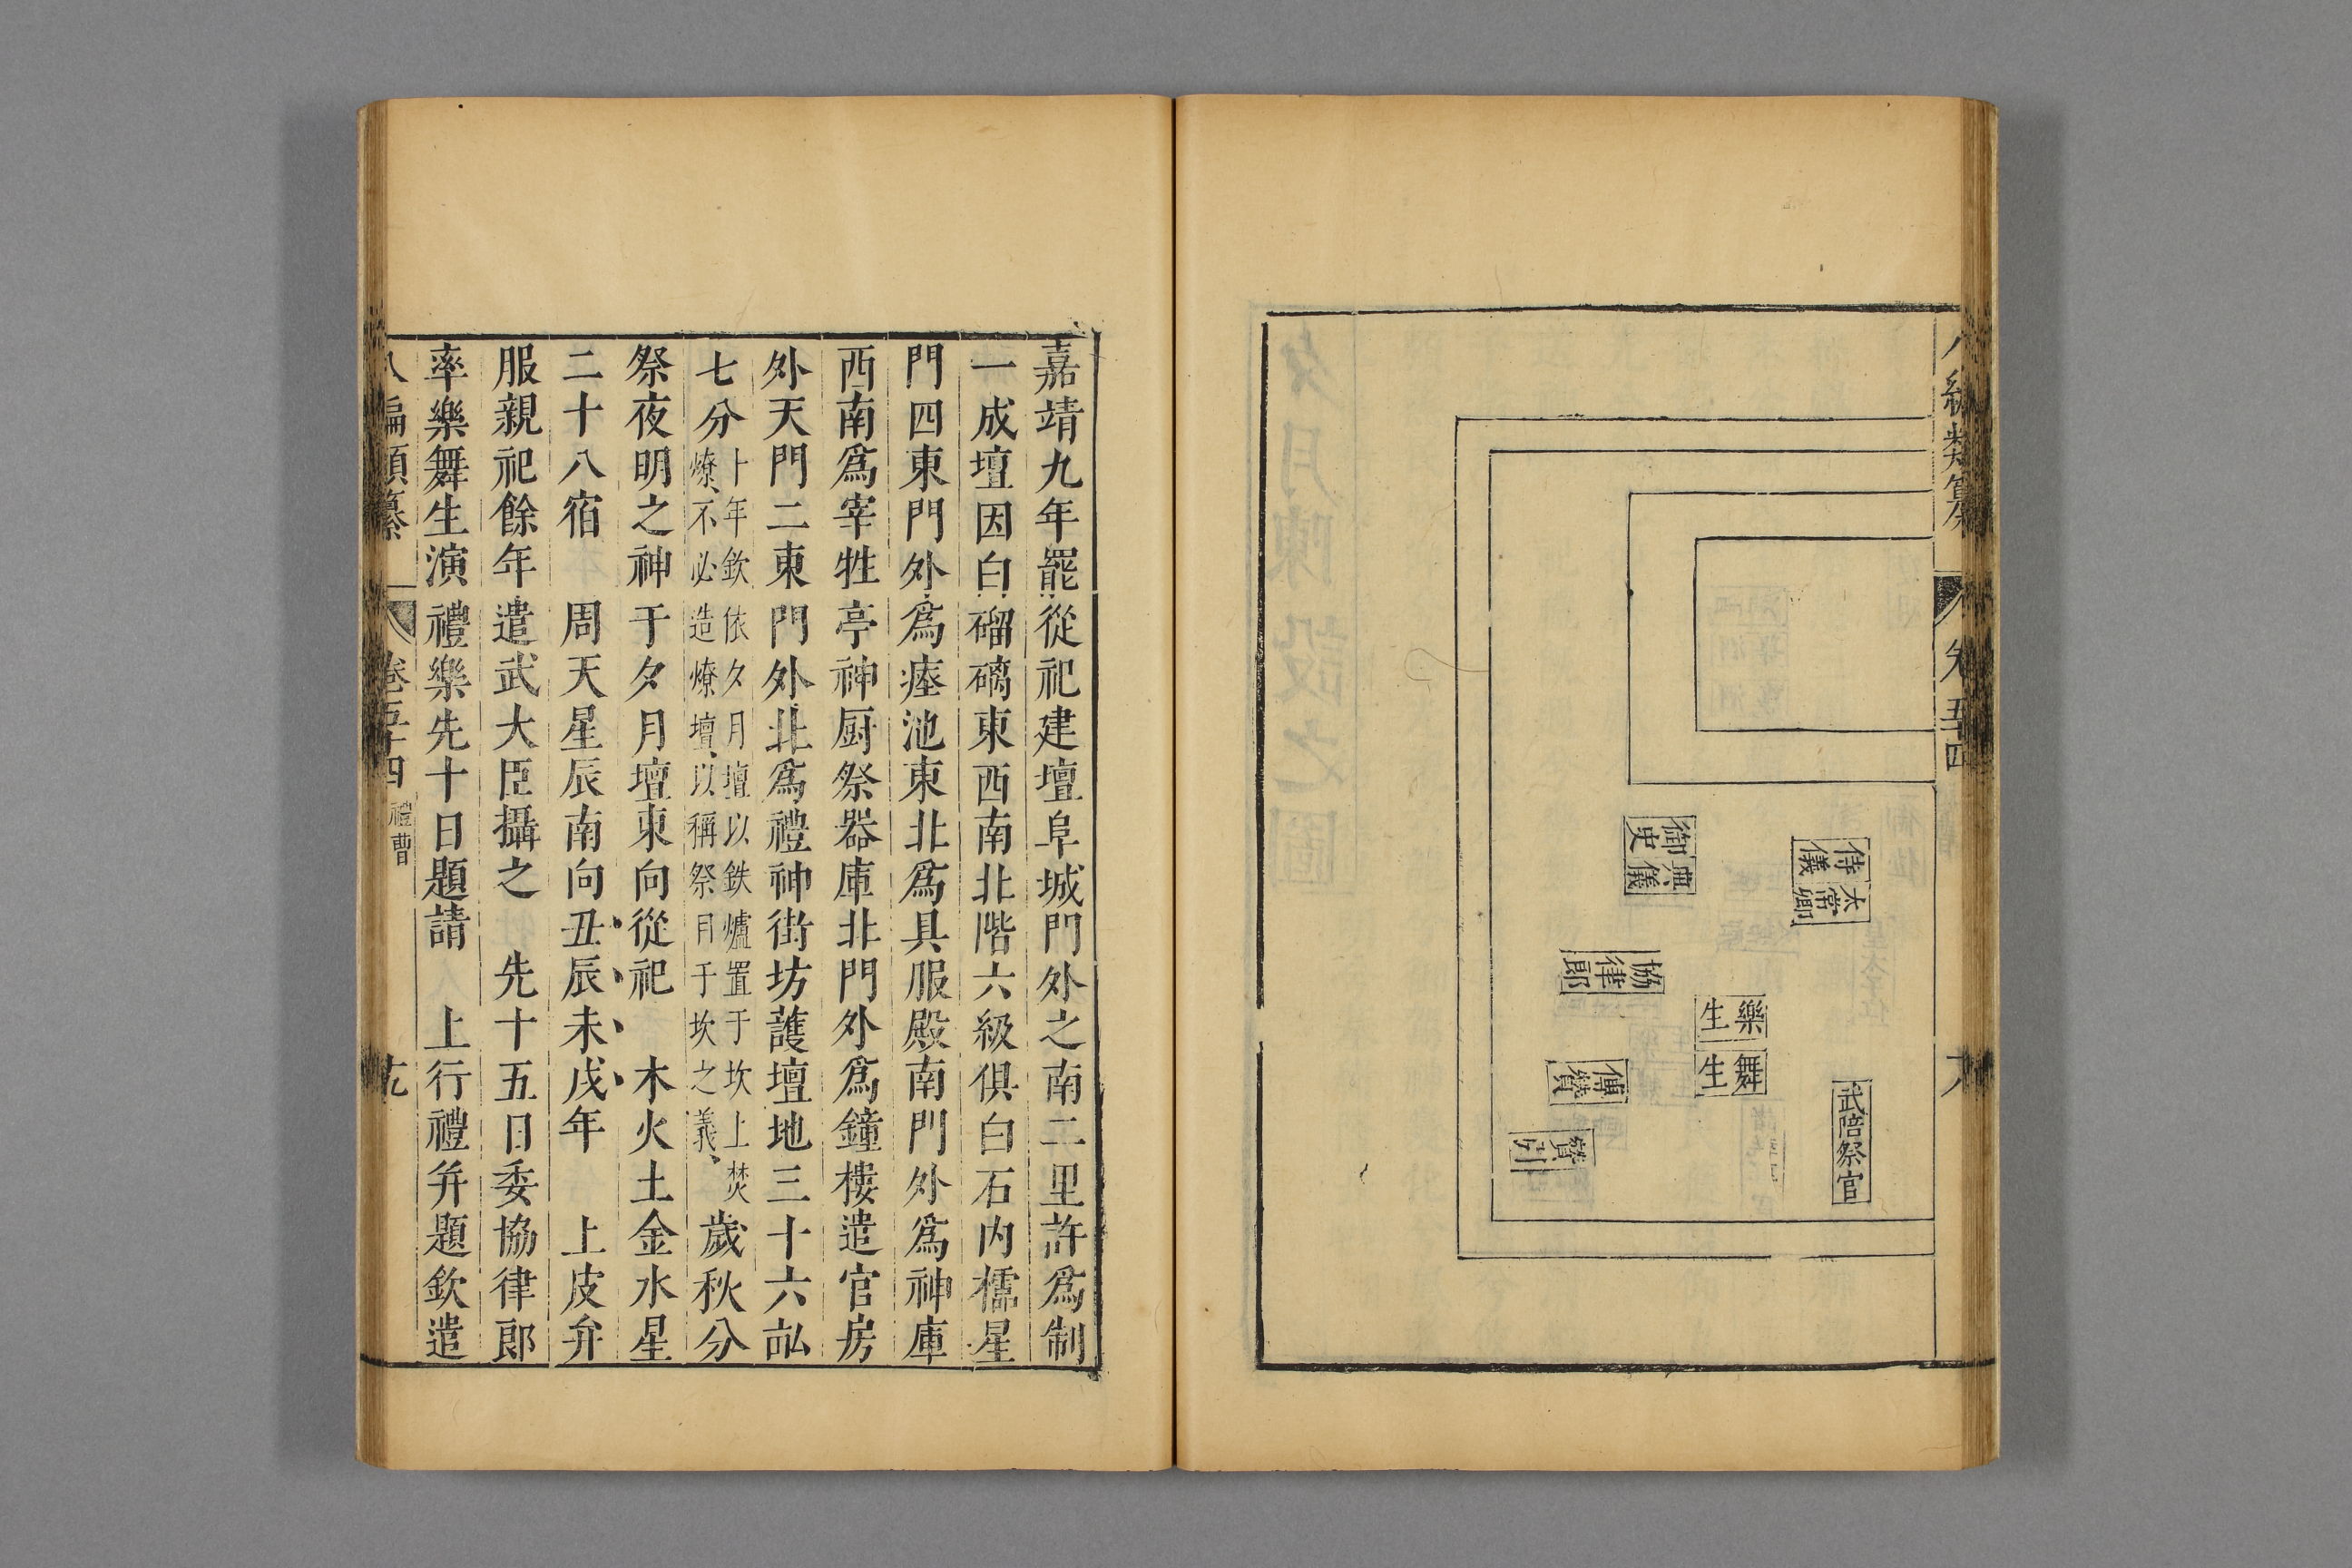 八編類纂
卷五十四
侍儀
太常卿
御史
典儀
協律郎
樂生
舞生
傳贊
贊列
武陪祭官
嘉靖九年罷從祀建壇阜城門外之南二里許爲制
一成壇因白磂磸東西南北階六級俱白石内櫺星
門四東門外爲瘞池東北爲具服殿南門外爲神庫
西南爲宰牲亭神厨祭器庫北門外爲鐘樓遣官房
外天門二東門外北爲禮神街坊護壇地三十六畝
七分十年欽依夕月壇以鉄爐置于坎上焚燎不必造燎壇以稱祭月于坎之義歲秋分
祭夜明之神于夕月壇東向從祀 木火土金水星
二十八宿 周天星辰南向丑辰未戌年 上皮弁
服親祀餘年遣武大臣攝之 先十五日委協律郎
率樂舞生演禮樂先十日題請 上行禮并題欽遣
八編類纂
卷五十四
禮曹